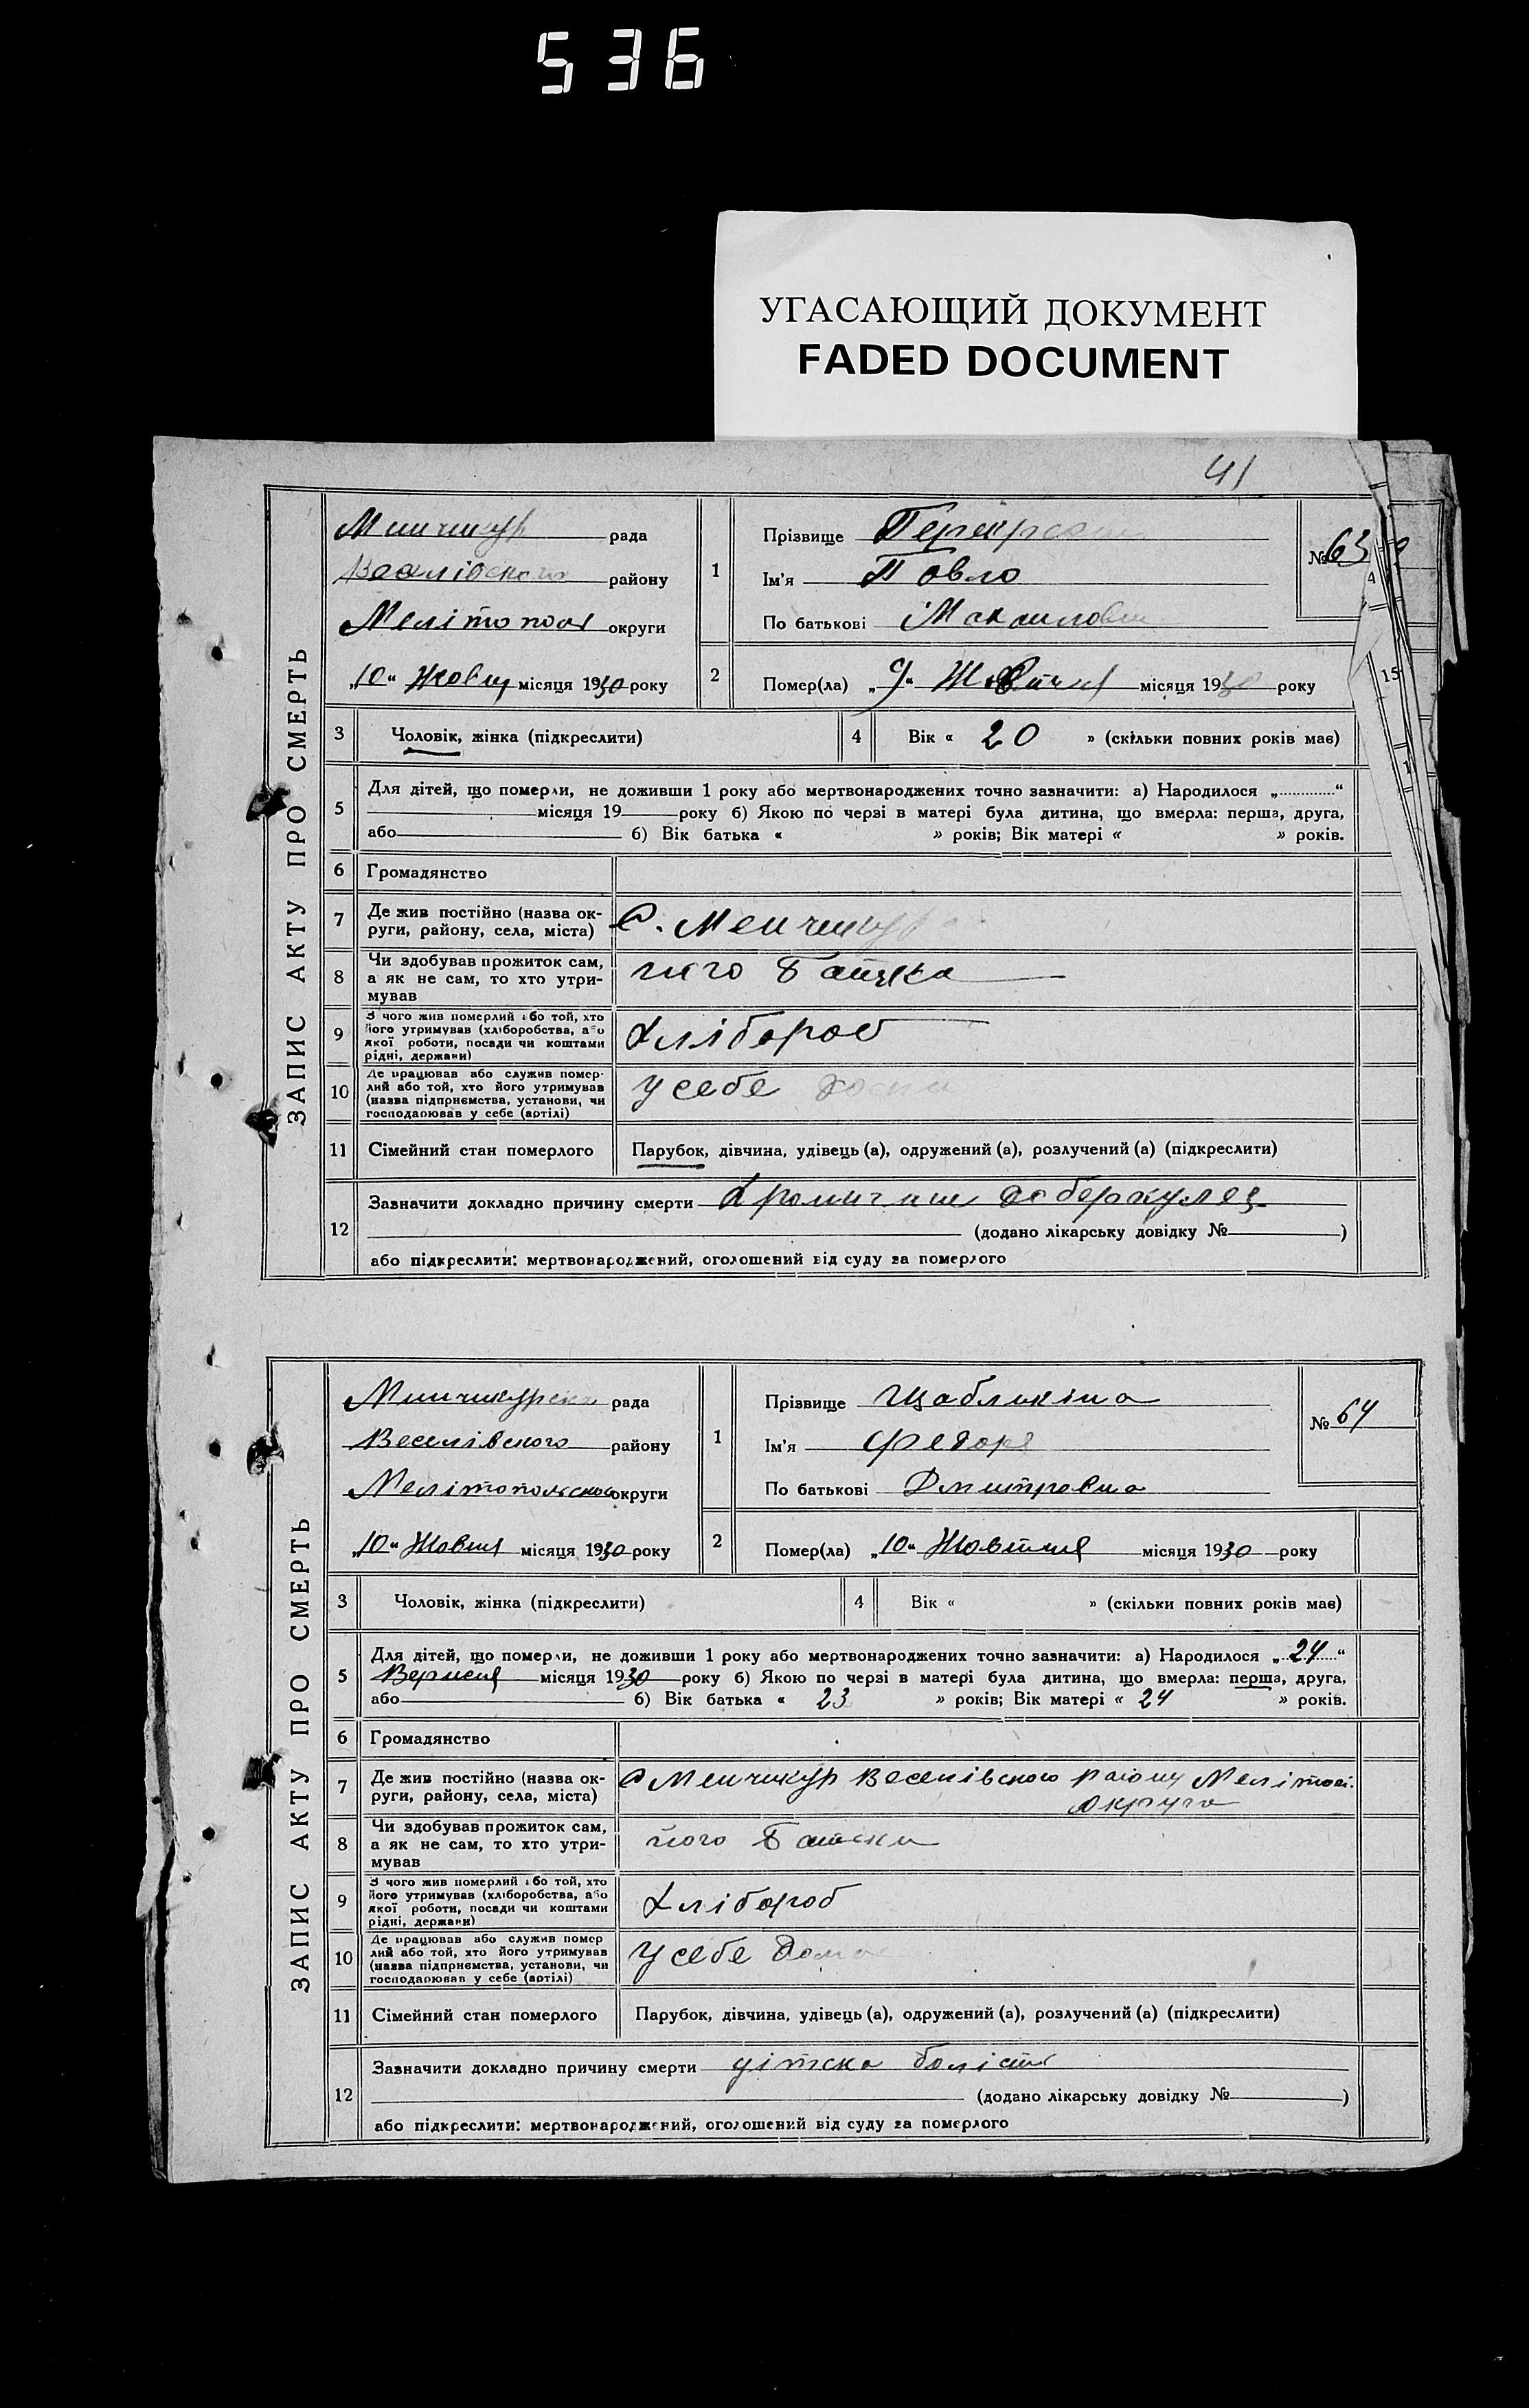 536
УГАСАЮЩИЙ ДОКУМЕНТ
FADED DOCUMENT
41
ЗАПИС АКТУ ПРО СМЕРТЬ
Минчикур рада
Веселівского району
Мелітопол округи
„10“ Жовт місяця 1930 року
1
Прізвище
Ім'я Повло
По батькові
№ 63
2
Помер(ла) „9“ Жовтня місяця 1930 року
3 Чоловік, жінка (підкреслити)
4 Вік « 20 » (скільки повних років має)
5 Для дітей, що померли, не доживши 1 року або мертвонароджених точно зазначити: а) Народилося „ “
місяця 19 року б) Якою по черзі в матері була дитина, що вмерла: перша, друга,
або б) Вік батька « » років; Вік матері « » років.
6 Громадянство
7 Де жив постійно (назва округи, району, села, міста) С. Менчикур
8 Чи здобував прожиток сам, а як не сам, то хто утримував його Батька
9 З чого жив померлий або той, хто його утримував (хліборобства, або якої роботи, посади чи коштами рідні, держави) Хлібороб
10 Де працював або служив померлий або той, хто його утримував (назва підприємства, установи, чи господарював у себе (артілі) У себе
11 Сімейний стан померлого Парубок, дівчина, удівець (а), одружений (а), розлучений (а) (підкреслити)
12 Зазначити докладно причину смерти
(додано лікарську довідку № )
або підкреслити: мертвонароджений, оголошений від суду за померлого
ЗАПИС АКТУ ПРО СМЕРТЬ
Минчикурска рада
Веселівского району
Мелітопольскої округи
„10“ Жовтня місяця 1930 року
1
Прізвище Щабликіна
Ім'я Федора
По батькові Дмитровна
№ 64
2
Помер(ла) „10“ Жовтня місяця 1930 року
3 Чоловік, жінка (підкреслити)
4 Вік « » (скільки повних років має)
5 Для дітей, що померли, не доживши 1 року або мертвонароджених точно зазначити: а) Народилося „24“
Вересня місяця 1930 року б) Якою по черзі в матері була дитина, що вмерла: перша, друга,
або б) Вік батька « 23 » років; Вік матері « 24 » років.
6 Громадянство
7 Де жив постійно (назва округи, району, села, міста) С Менчикур Веселівского району Мелітоп.
округа
8 Чи здобував прожиток сам, а як не сам, то хто утримував його Батьки
9 З чого жив померлий або той, хто його утримував (хліборобства, або якої роботи, посади чи коштами рідні, держави) Хлібороб
10 Де працював або служив померлий або той, хто його утримував (назва підприємства, установи, чи господарював у себе (артілі) У себе дома
11 Сімейний стан померлого Парубок, дівчина, удівець (а), одружений (а), розлучений (а) (підкреслити)
12 Зазначити докладно причину смерти дітска болість
(додано лікарську довідку № )
або підкреслити: мертвонароджений, оголошений від суду за померлого